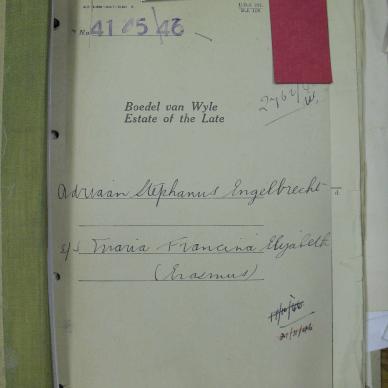 No. 4105/46
Boedel van Wyle
Estate of the Late
Adriaan Stephanus Engelbrecht
s/s Maria Francina Elizabeth
(Erasmus)
21/11/46